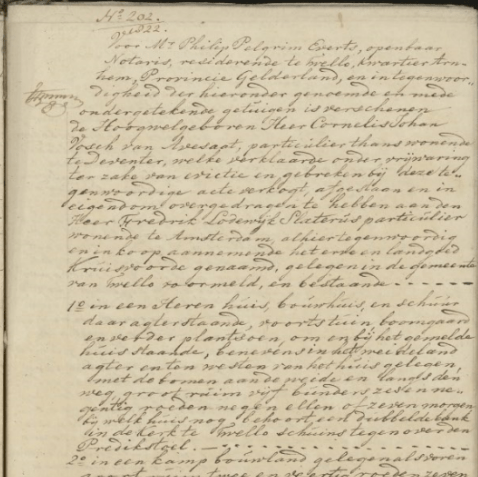 No 202.
Voor Mr Philip Pelgrim Everts, openbaar
Notaris, residerende te Twello, kwartier Arn-
hem, Provincie Gelderland, en in tegenwoor-
digheid der hieronder genoemde en mede
ondergetekende getuigen is verschenen
de Hoogwelgeboren Heer Cornelis Johan
Bosch van Avesaat, particulier thans wonende
te Deventer, welke verklaarde onder vrijwaring
ter zake van evictie en gebreken bij deze te-
genwoordige acte verkogt, afgestaan en in
eigendom overgedragen te hebben aan den
Heer Fredrik Lodewijk Slaterus particulier
wonende te Amsterdam, alhier tegenwoordig
en in koop aannemende het erve en landgoed
Kruisvoorde genaamd, gelegen in de gemeente
van Twello voormeld, en bestaande
1o in een Heren huis, bouwhuis, en schuur
daar agterstaande, voorts tuin boomgaard
en verder plantsoen, om en bij het gemelde
huis staande, benevens in het weideland
agter en ten westen van het huis gelegen,
met de bomen aan de weide en langs den
weg groot ruim vijf bunders zeven ne-
gentig roeden negen ellen of zeven morgen
bij welk huis nog behoort een dubbelde bank
in de kerk te Twello schuins tegenover den
Predikstoel.
2o in een kamp bouwland gelegen als voren
groot ruim twee en veertig roeden zeven